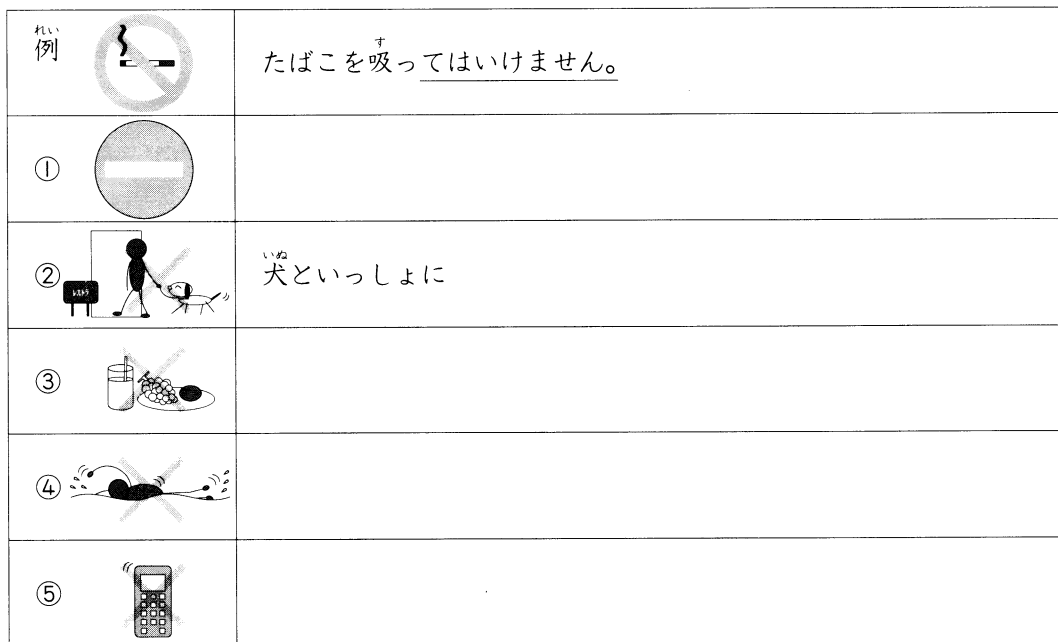 例
れい
たばこを吸ってはいけません。
す
①
②
レストラ
犬といっしょに
いぬ
③
④
⑤